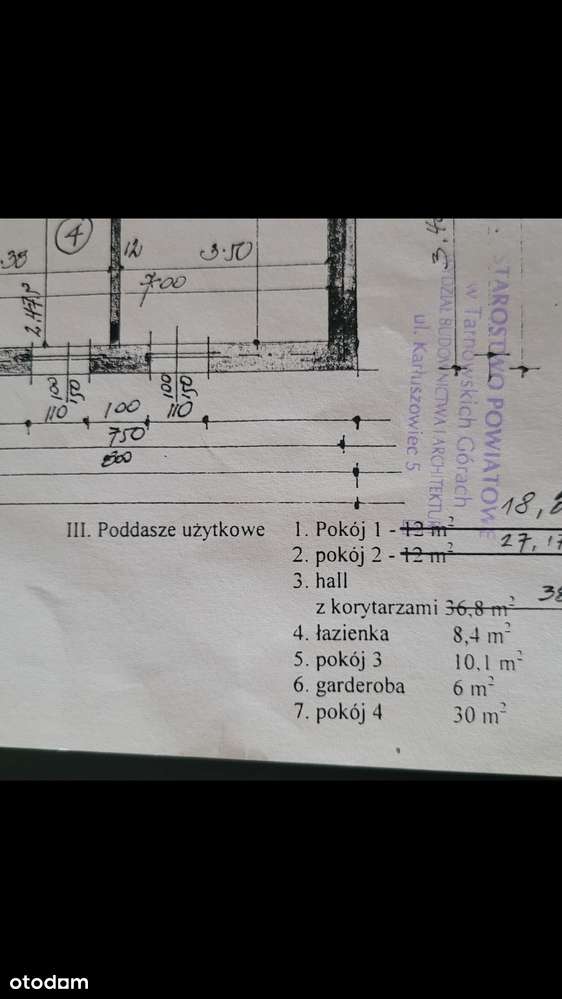 4
12
3.50
.35
700
2.475
100
150
110
100
100
150
110
750
800
STAROSTWO POWIATOWE
w Tarnowskich Górach
WYDZIAŁ BUDOWNICTWA I ARCHITEKTURY
ul. Karłuszowiec 5
III. Poddasze użytkowe
1. Pokój 1 - 12 m² 18,
2. pokój 2 - 12 m² 27,17
3. hall
z korytarzami 36,8 m² 38
4. łazienka 8,4 m²
5. pokój 3 10,1 m²
6. garderoba 6 m²
7. pokój 4 30 m²
otodom